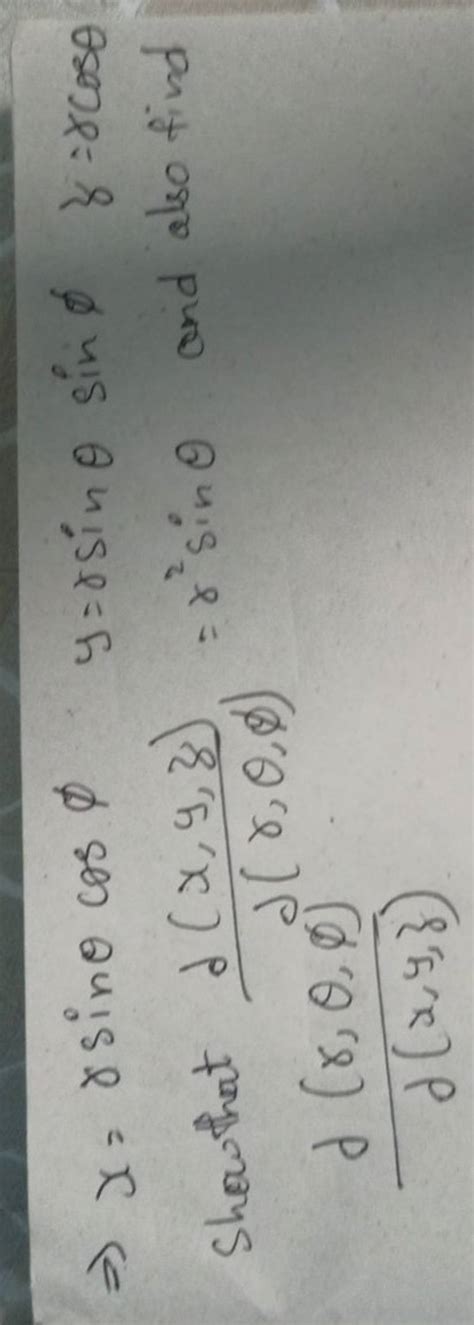 ⇒ x = r sinθ cos φ y = r sinθ sin φ z = r cosθ
Show that ∂(x, y, z) / ∂(r, θ, φ) = r² sin θ and also find
∂(r, θ, φ) / ∂(x, y, z)